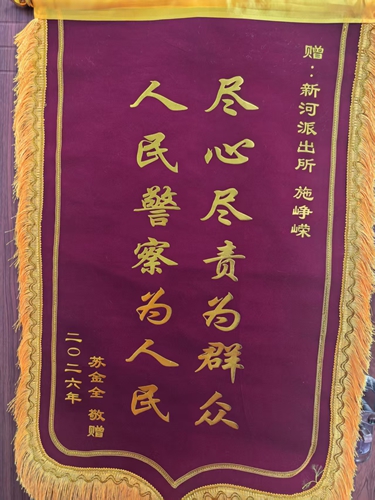 赠：新河派出所 施峥嵘
尽心尽责为群众
人民警察为人民
苏金全 敬赠
二〇二六年